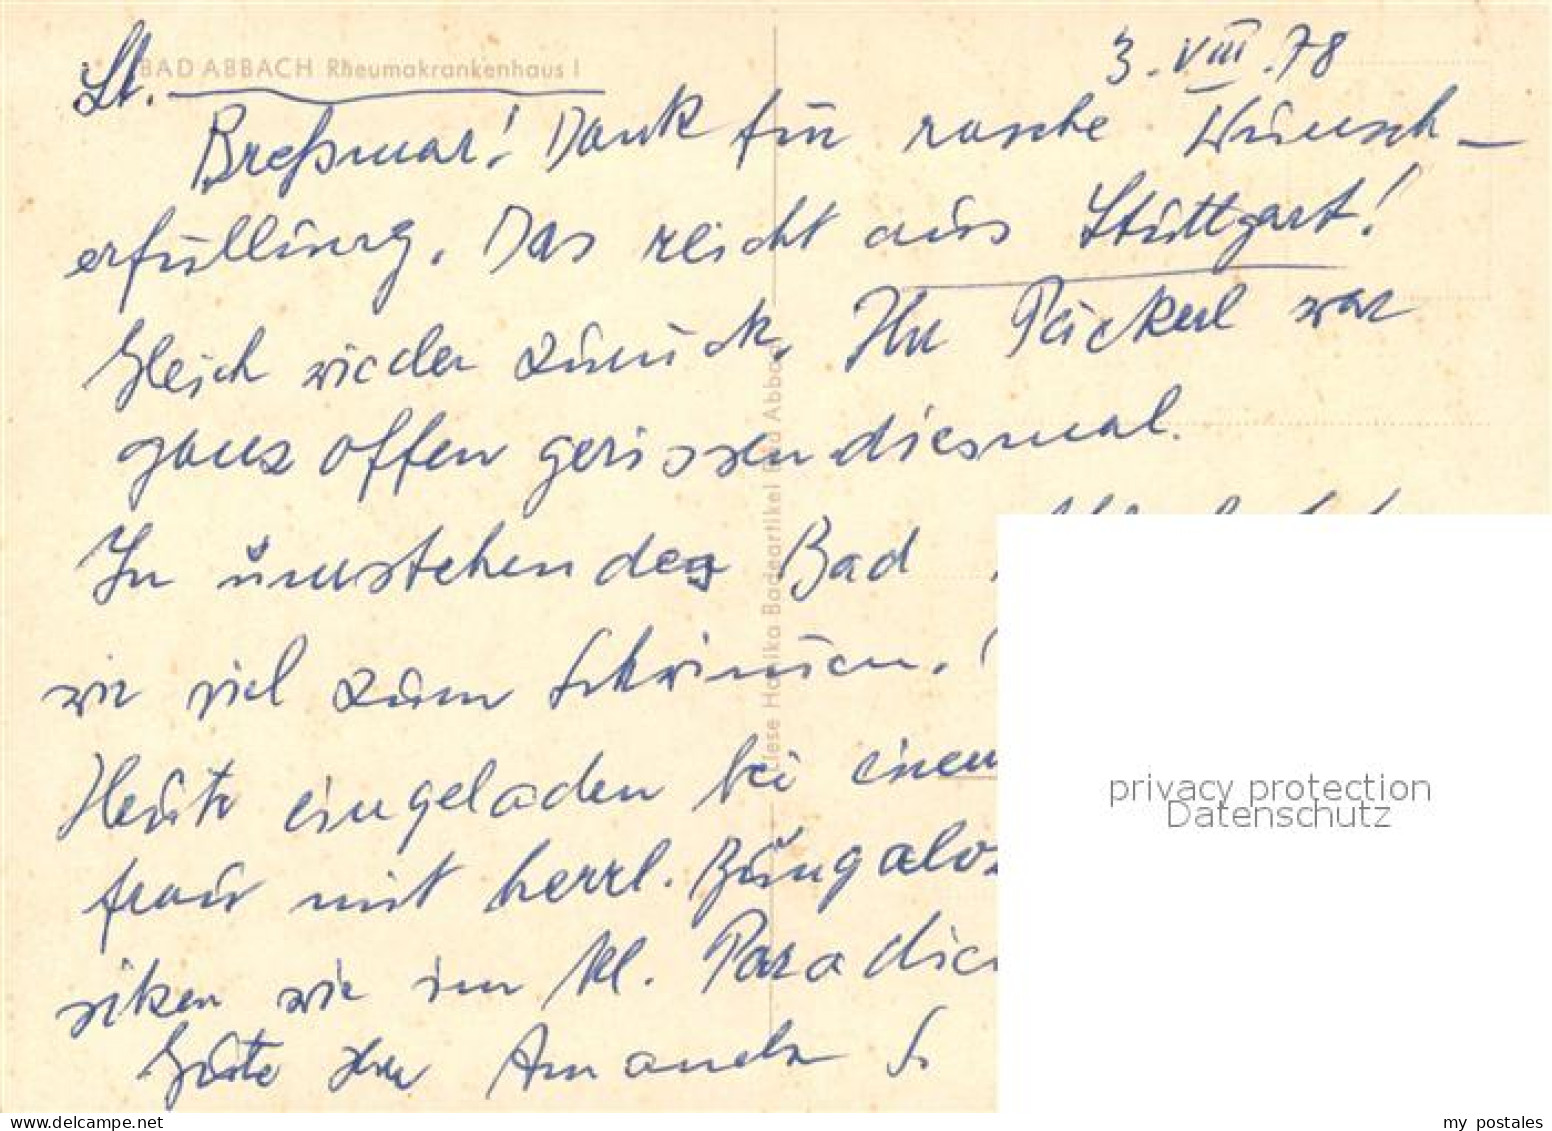 BAD ABBACH Rheumakrankenhaus I
3. VIII. 78
St.
Breßmar! Dank für rasche Wunsch-
erfüllung. Das reicht aus Stuttgart!
Gleich wieder zurück. Ihr Päckerl war
ganz offen gerissen diesmal.
In umstehendes Bad
wir viel zum Schwimmen.
Heute eingeladen bei einem
frau mit herrl. Bungalow
sitzen wir im kl. Paradies
Gute Ihre Amanda S.
Liese Hanika Badeartikel Bad Abbach
privacy protection
Datenschutz
my postales